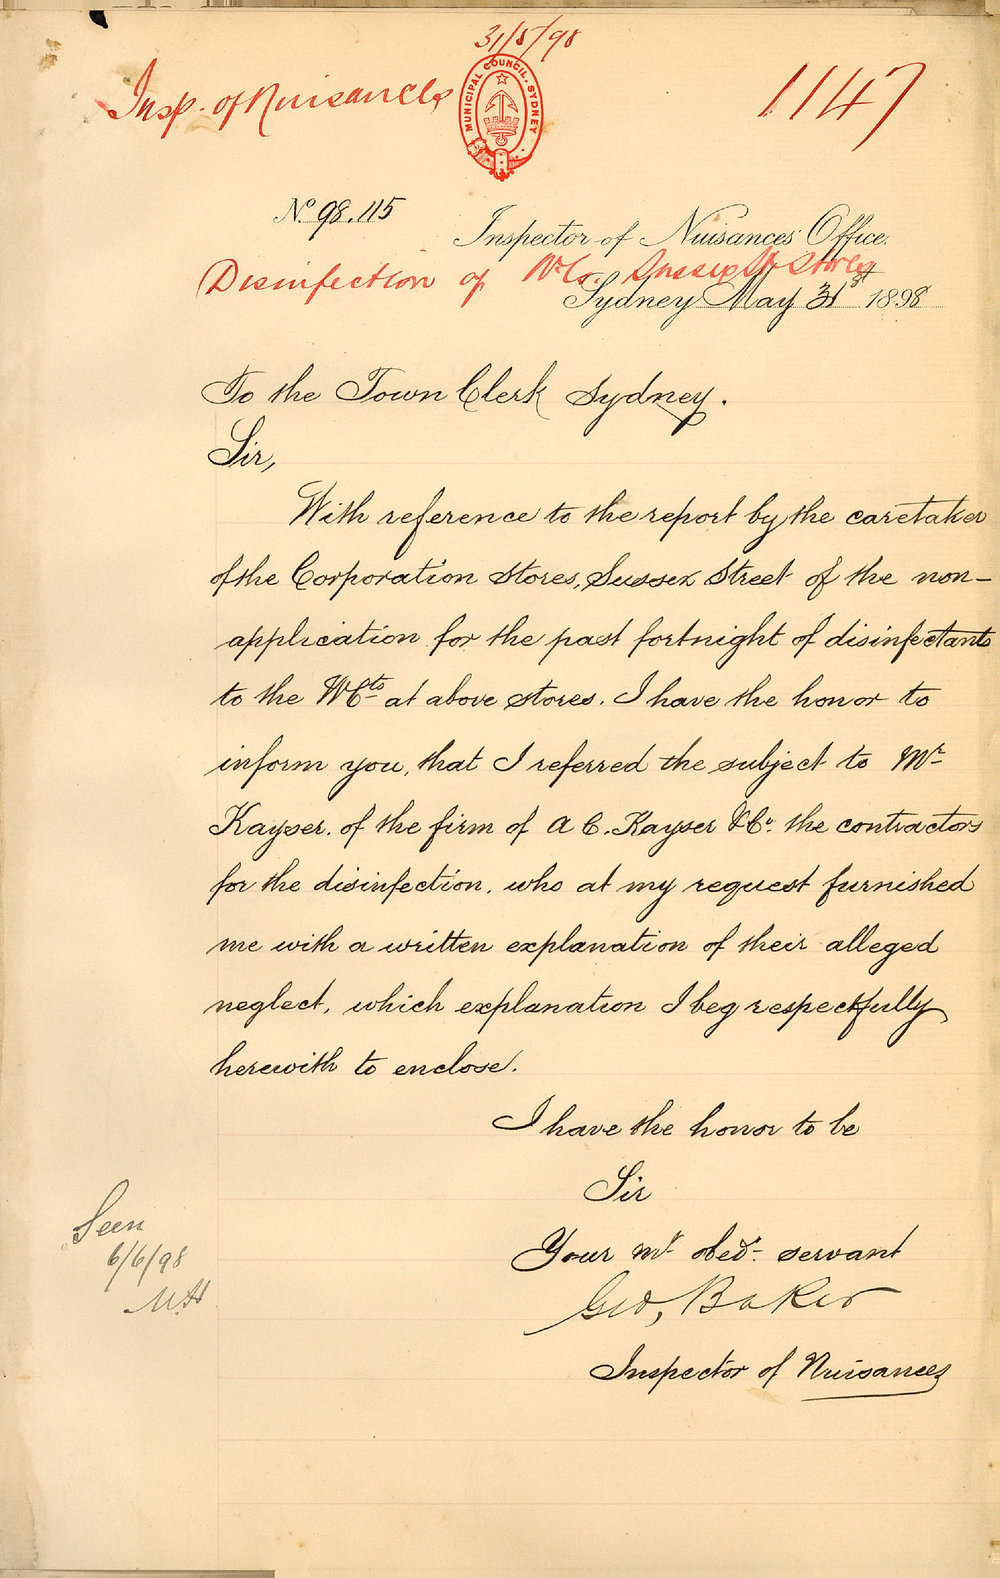 31/5/98
Insp. of Nuisances
MUNICIPAL COUNCIL. SYDNEY
1147
No. 98.115
Inspector of Nuisances Office.
Disinfection of W.Cs. Sussex St Stores
Sydney May 31st 1898
To the Town Clerk Sydney.
Sir,
With reference to the report by the caretaker
of the Corporation Stores, Sussex Street of the non-
application for the past fortnight of disinfectants
to the WCts at above stores. I have the honor to
inform you, that I referred the subject to Mr
Kayser. of the firm of A C. Kayser & Co. the contractors
for the disinfection. who at my request furnished
me with a written explanation of their alleged
neglect, which explanation I beg respectfully
herewith to enclose.
I have the honor to be
Sir
Your mt obedt servant
Geo, Baker
Inspector of Nuisances
Seen
6/6/98
M.H